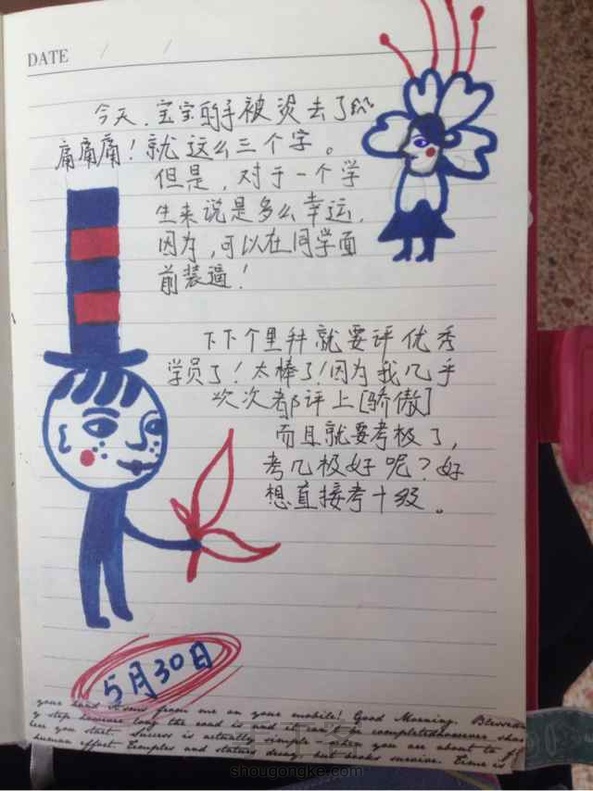 DATE / /
今天.宝宝的手被烫去了
痛痛痛!就这么三个字。
但是,对于一个学
生来说是多么幸运,
因为,可以在同学面
前装逼!
下下个里拜就要评优秀
学员了!太棒了!因为我几乎
次次都评上[骄傲]
而且就要考极了,
考几极好呢?好
想直接考十级。
5月30日
your hand from me on your mobile! Good Morning. Blessed
step however long the road is and it can't be completed however shor
here you start. Success is actually simple when you are about to
human effort. Temples and statues decay, but books survive. Time is
shougongke.com